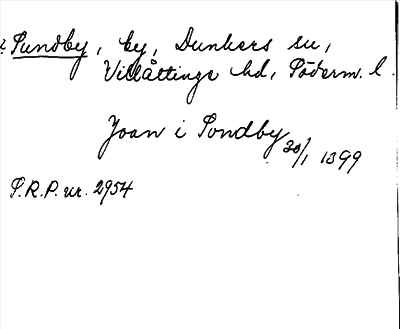 ? Sundby, by, Dunkers sn,
Villåttinge hd, Söderm. l.
Joan i Sondby 30/1 1399
S.R.P. nr. 2954